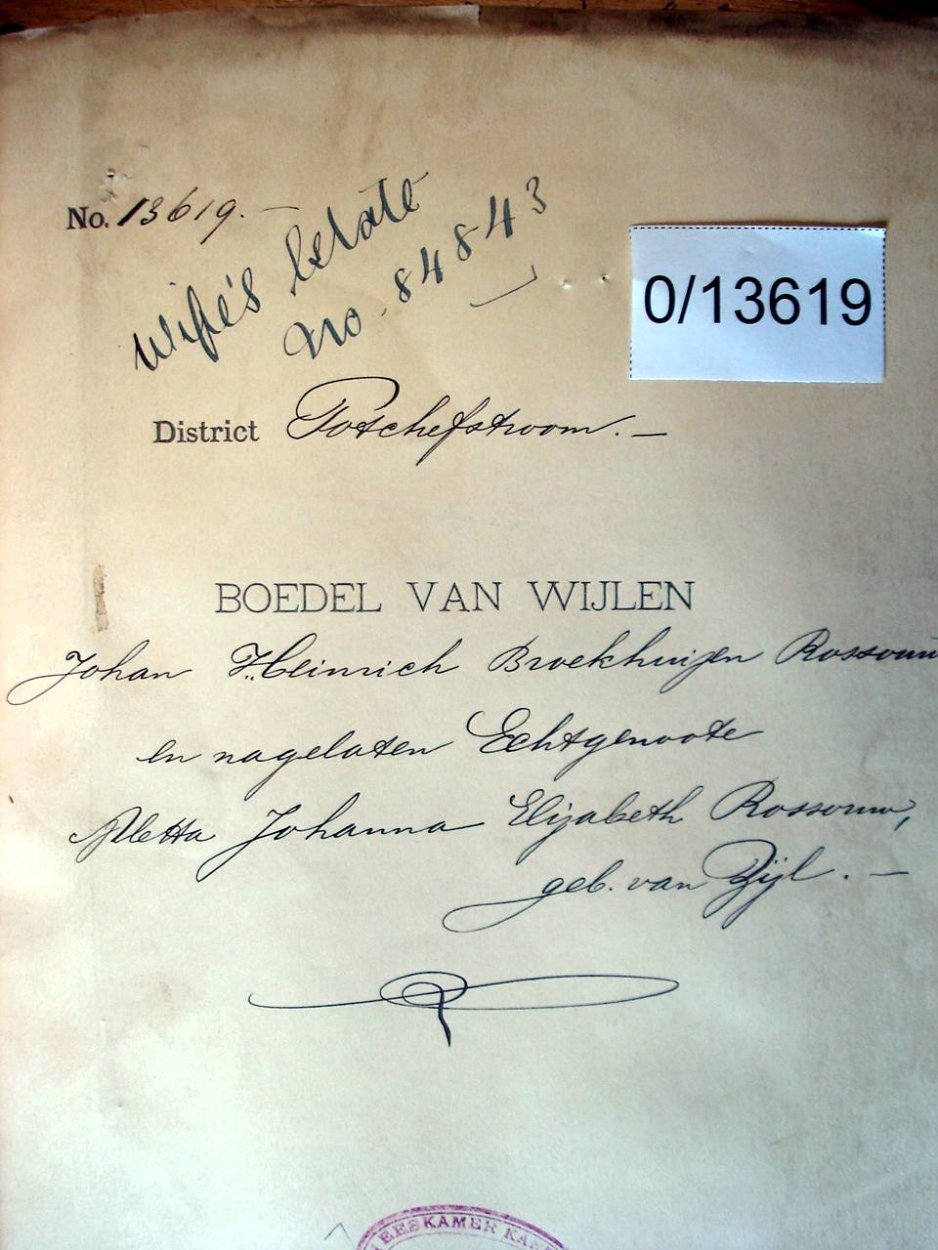 No. 13619. —
Wife's Estate
No. 84843
0/13619
District Potschefstroom. —
BOEDEL VAN WIJLEN
Johan Heinrich Broekhuijzen Rossouw
en nagelaten Echtgenoote
Aletta Johanna Elizabeth Rossouw,
geb. van Zijl. —
EESKAMER